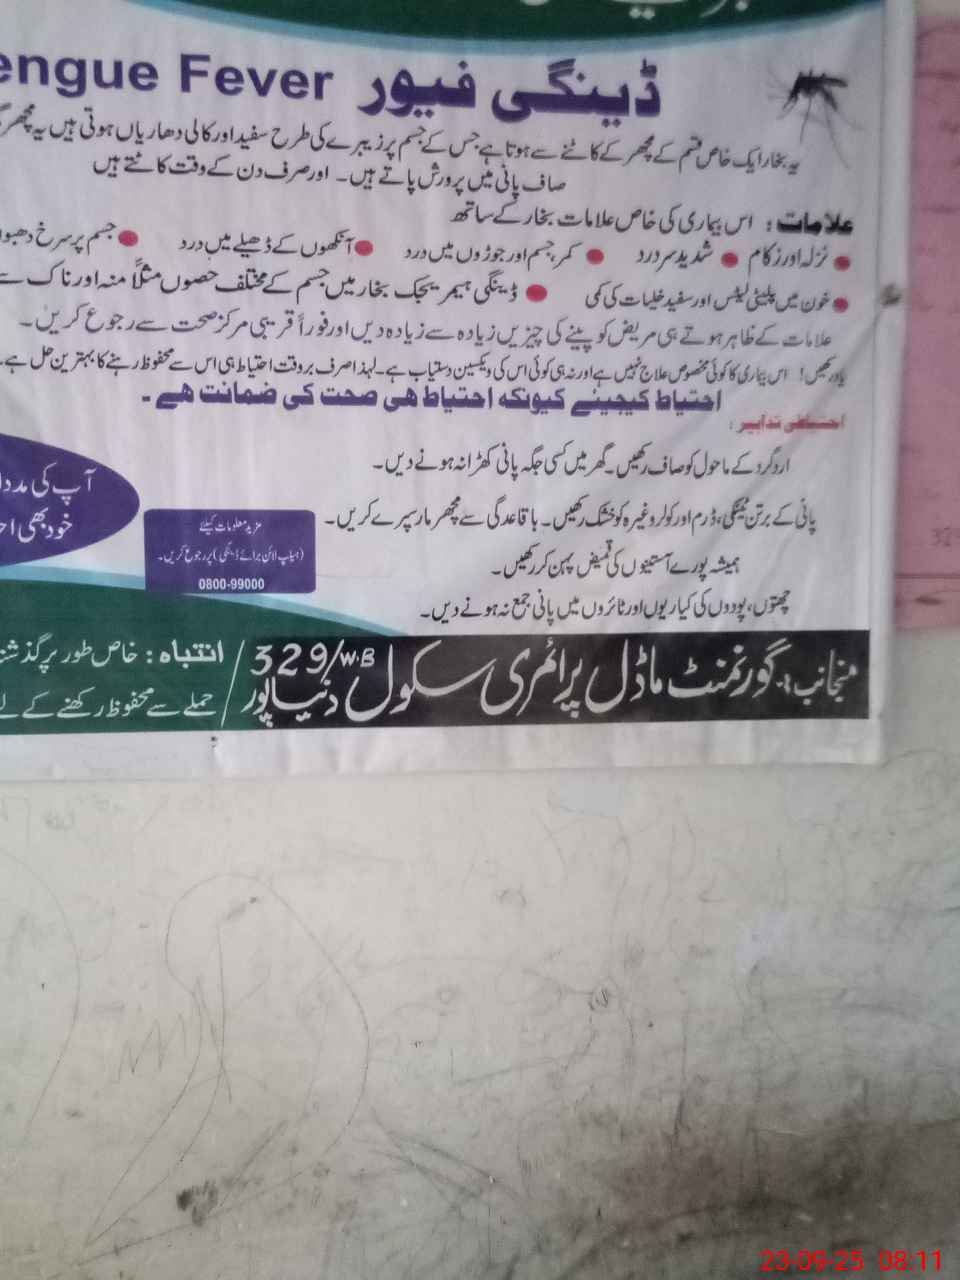 ڈینگی فیور engue Fever
یہ بخار ایک خاص قسم کے مچھر کے کاٹنے سے ہوتا ہے جس کے جسم پر زیبرے کی طرح سفید اور کالی دھاریاں ہوتی ہیں یہ مچھر
صاف پانی میں پرورش پاتے ہیں۔ اور صرف دن کے وقت کاٹتے ہیں
علامات: اس بیماری کی خاص علامات بخار کے ساتھ
● نزلہ اور زکام ● شدید سر درد ● کمر، جسم اور جوڑوں میں درد ● آنکھوں کے ڈھیلے میں درد ● جسم پر سرخ
● خون میں پلیٹی لیٹس اور سفید خلیات کی کمی ● ڈینگی ہیمریجک بخار میں جسم کے مختلف حصوں مثلاً منہ اور ناک سے
علامات کے ظاہر ہوتے ہی مریض کو پینے کی چیزیں زیادہ سے زیادہ دیں اور فوراً قریبی مرکز صحت سے رجوع کریں۔
یاد رکھیں! اس بیماری کا کوئی مخصوص علاج نہیں ہے اور نہ ہی کوئی اس کی ویکسین دستیاب ہے۔ لہذا صرف بروقت احتیاط ہی اس سے محفوظ رہنے کا بہترین حل ہے۔
احتیاط کیجیئے کیونکہ احتیاط ھی صحت کی ضمانت ھے۔
احتیاطی تدابیر:
ارد گرد کے ماحول کو صاف رکھیں۔ گھر میں کسی جگہ پانی کھڑا نہ ہونے دیں۔
پانی کے برتن، ٹینکی، ڈرم اور کولر وغیرہ کو خشک رکھیں۔ باقاعدگی سے مچھر مار سپرے کریں۔
ہمیشہ پورے آستینوں کی قمیض پہن کر رکھیں۔
چھتوں، پودوں کی کیاریوں اور ٹائروں میں پانی جمع نہ ہونے دیں۔
آپ کی مدد
خود بھی
مزید معلومات کیلئے
(ہیلپ لائن برائے ڈینگی) پر رجوع کریں۔
0800-99000
منجانب:۔ گورنمنٹ ماڈل پرائمری سکول 329/W.B دنیاپور
انتباہ: خاص طور پر گذشتہ
حملے سے محفوظ رکھنے کے
23-09-25 08:11